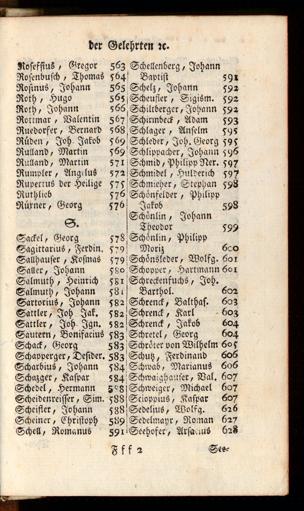 der Gelehrten ꝛc.
Roseffius, Gregor 563
Rosenbusch, Thomas 564
Rosinus, Johann 565
Roth, Hugo 565
Roth, Johann 566
Rottmar, Valentin 567
Ruedorfer, Bernard 568
Rüden, Joh. Jakob 569
Rulland, Martin 569
Rulland, Martin 571
Rumpler, Angelus 572
Rupertus der Heilige 575
Ruthlieb 576
Rürner, Georg 576
S.
Sackel, Georg 578
Sagittarius, Ferdin. 579
Sallhauser, Kosmas 579
Saller, Johann 580
Salmuth, Heinrich 581
Salmuth, Johann 581
Sartorius, Johann 582
Sattler, Joh. Jak. 582
Sattler, Joh. Ign. 582
Sautern, Bonifacius 583
Schack, Georg 583
Schapperger, Desider. 583
Scharbius, Johann 584
Schazger, Kaspar 584
Schedel, Hermann 588
Scheidenreisser, Sim. 588
Scheifler, Johann 588
Scheiner, Christoph 589
Schell, Romanus 591
Schellenberg, Johann
Baptist 591
Schelz, Johann 592
Scheusler, Sigism. 592
Schiltberger, Johann 592
Schirmbeck, Adam 593
Schlager, Anselm 595
Schleder, Joh. Georg 595
Schlippacher, Johann 596
Schmid, Philipp Ner. 597
Schmidel, Hulderich 597
Schmieher, Stephan 598
Schönfelder, Philipp
Jakob 598
Schönlin, Johann
Theodor 599
Schönlin, Philipp
Moriz 600
Schönsleder, Wolfg. 601
Schopper, Hartmann 601
Schreckenfuchs, Joh.
Barthol. 602
Schrenck, Balthas. 603
Schrenck, Karl 603
Schrenck, Jakob 604
Schretel, Georg 604
Schröter von Wilhelm 605
Schutz, Ferdinand 606
Schwab, Marianus 606
Schwaighauser, Val. 607
Schweiger, Michel 607
Scioppius, Kaspar 607
Sedelius, Wolfg. 626
Sedelmayr, Roman 627
Seehofer, Arsacius 628
Fff 2
See-